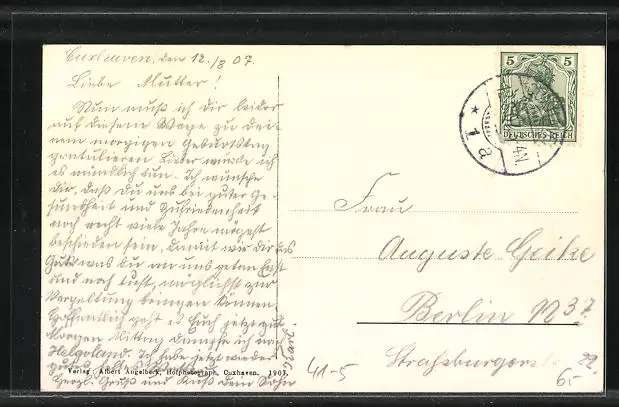 Cuxhaven, den 12./8 07.
Liebe Mutter!
Nun muß ich dir leider
auf diesem Wege zu dei-
nem morgigen Geburtstag
gratulieren. Lieber würde ich
es mündlich tun. Ich wünsche
dir, daß Du uns bei guter Ge-
sundheit und Zufriedenheit
noch recht viele Jahre mögest
beschieden sein, damit wir dir das
Gute was du an uns getan hast
und noch tust, möglichst zur
Vergeltung bringen können.
Hoffentlich geht es Euch jetzt gut.
Morgen Mittag dampfe ich nach
Helgoland. Ich habe jetzt wieder
gutes
Herzl. Gruß und Kuß dein Sohn
Karl.
Verlag: Albert Angelbeck, Hofphotograph, Cuxhaven. 1907.
5 5
DEUTSCHES REICH
* 1 a
4N
Frau
Auguste Geike
Berlin N 37.
Straßburger
22
41-5
6.-